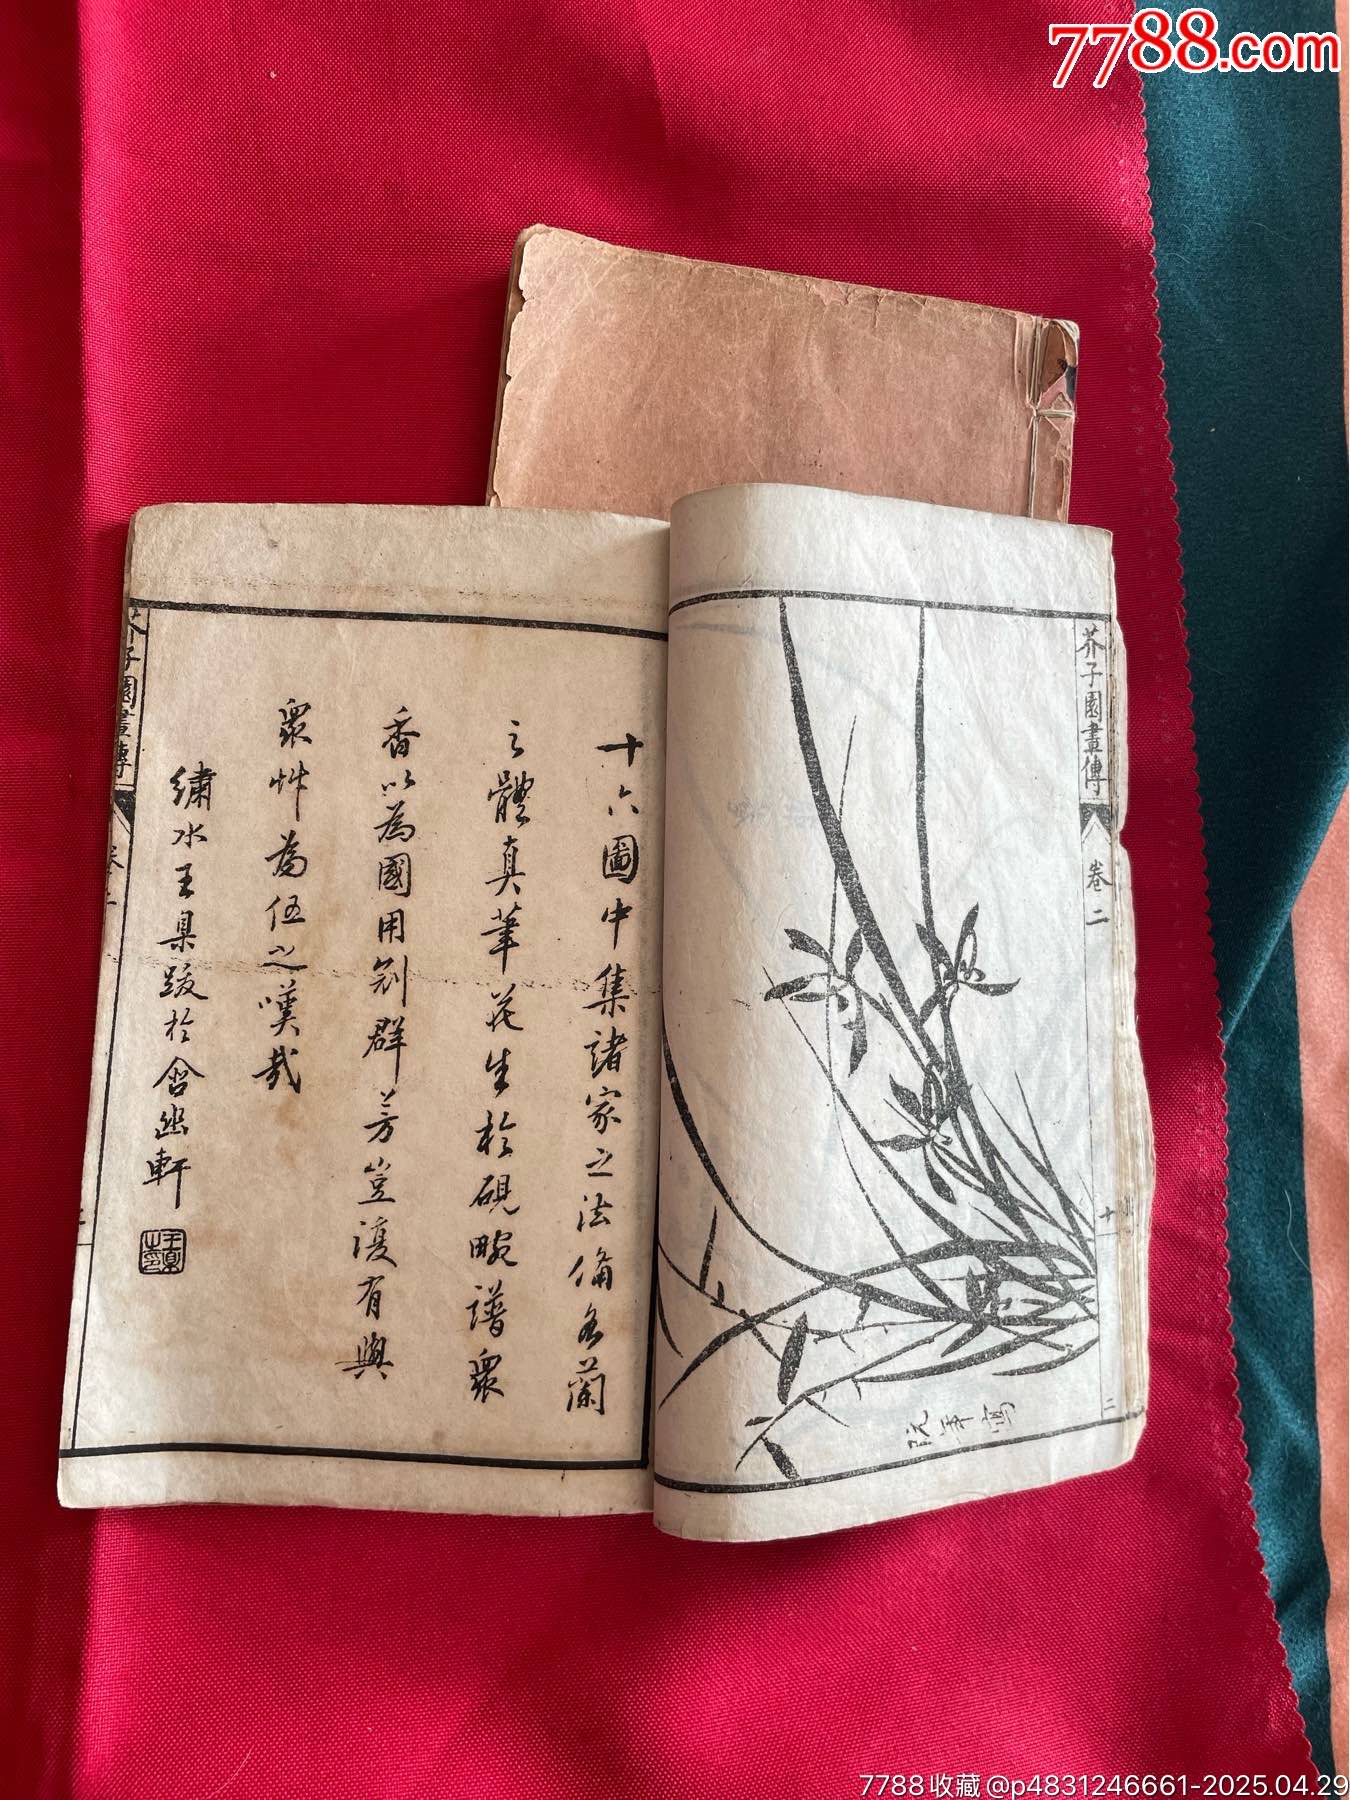 7788.com
芥子園畫傳
卷二
十一
二
阮年寫
十六圖中集諸家之法備各蘭
之體真筆花生於硯畹譜眾
香以為國用冠群芳豈復有與
眾艸為伍之嘆哉
繡水王臬跋於含幽軒
芥子園畫傳
7788收藏@p4831246661-2025.04.29